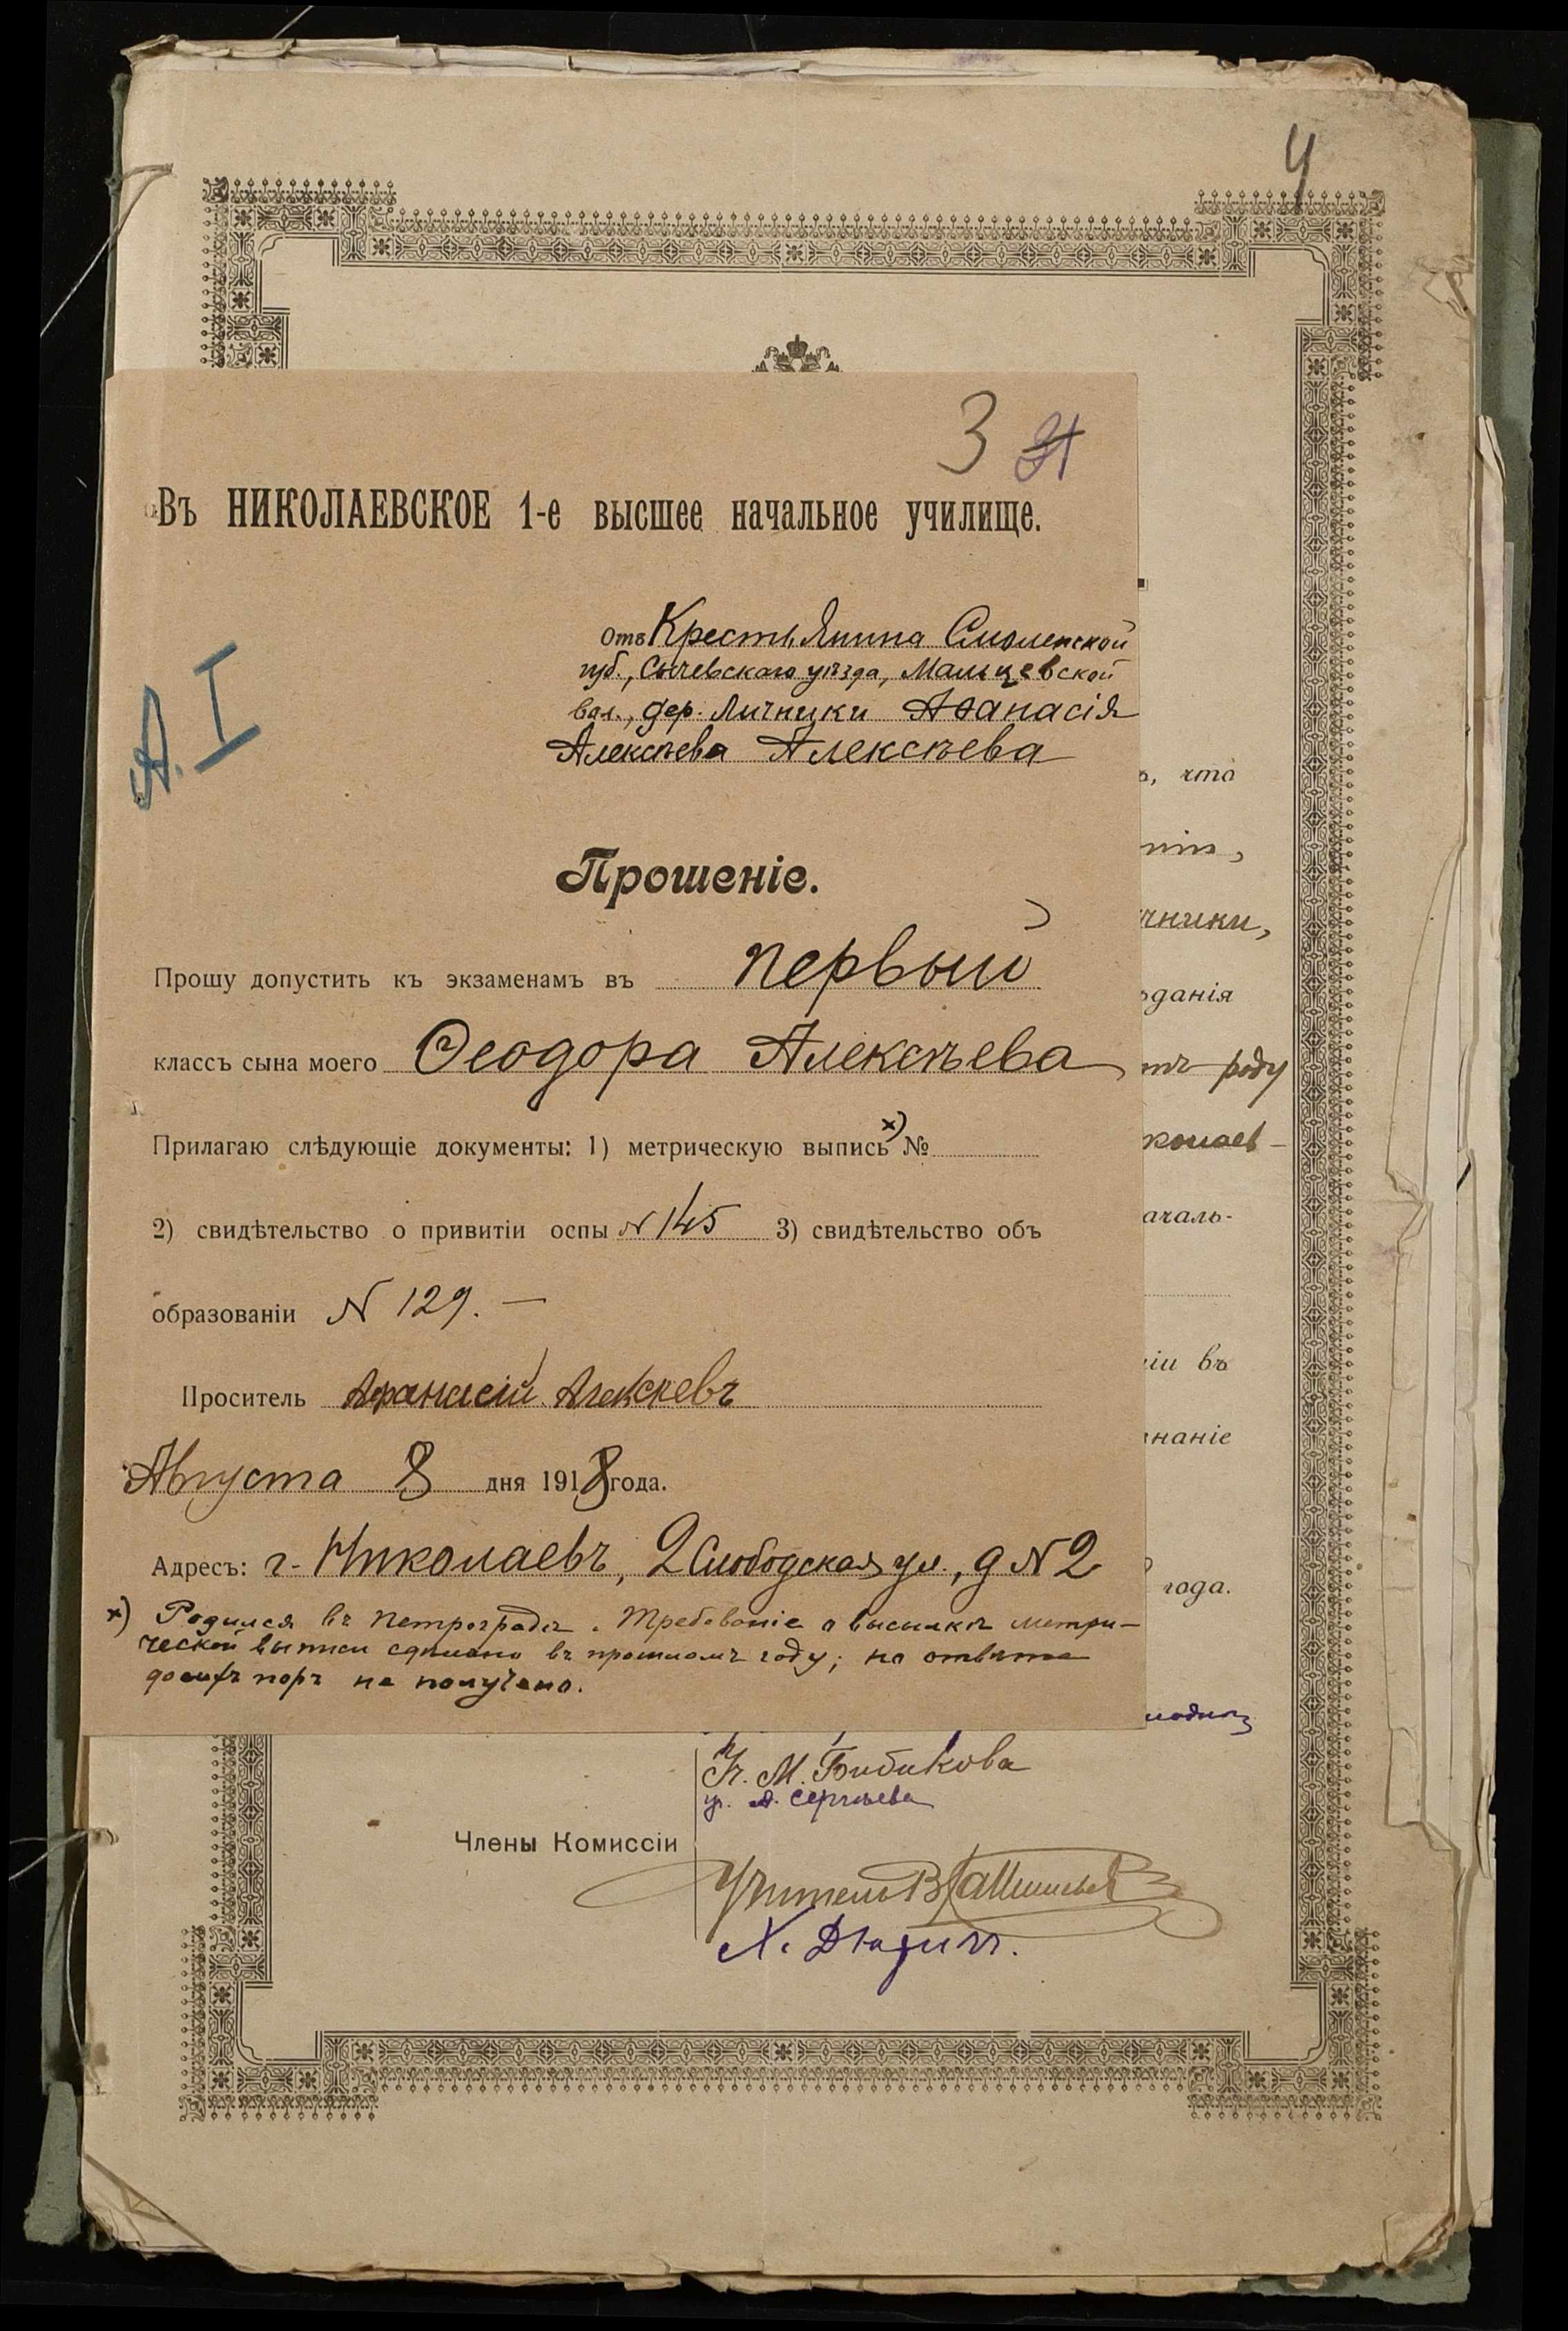 4
3 21
Въ НИКОЛАЕВСКОЕ 1-е высшее начальное училище.
А. I
отъ Крестьянина Смоленской
губ., Сычевскаго уѣзда, Мальцевской
вол., дер. Личники Аѳанасія
Алексѣева Алексѣева
Прошеніе.
Прошу допустить къ экзаменамъ въ первый
классъ сына моего Ѳеодора Алексѣева
Прилагаю слѣдующіе документы: 1) метрическую выпись х) №
2) свидѣтельство о привитіи оспы N 145 3) свидѣтельство объ
образованіи N 129. —
Проситель Афанасій Алексѣевъ
Августа 8 дня 1918 года.
Адресъ: г. Николаевъ, 2 Слободская ул., д N 2
х) Родился въ Петроградѣ. Требованіе о высылкѣ метри-
ческой выписи сдѣлано въ прошломъ году; но отвѣта
до сихъ поръ не получено.
ъ, что
чники,
ѣданія
роду
колаев-
ачаль-
іи въ
наніе
года.
Уч. М. Бибикова
уч. А. Сергѣева
Члены Комиссіи
Учитель В.